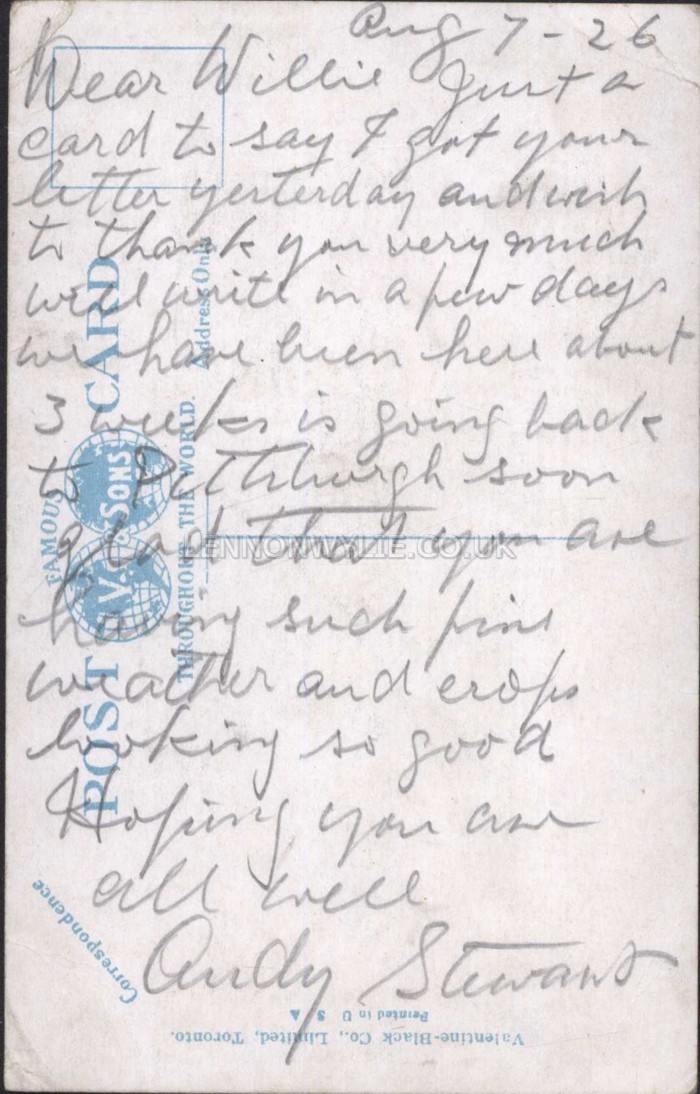 Aug 7-26
Dear Willie Just a
card to say I got your
letter yesterday and wish
to thank you very much
will write in a few days
we have been here about
3 weeks is going back
to Pittsburgh soon
glad that you are
having such fine
weather and crops
looking so good
Hoping you are
all well
Andy Stewart
POST CARD
FAMOUS
V. & SONS
THROUGHOUT THE WORLD.
Address Only
Correspondence
Valentine-Black Co., Limited, Toronto.
Printed in U S A
LENNONWYLIE.CO.UK